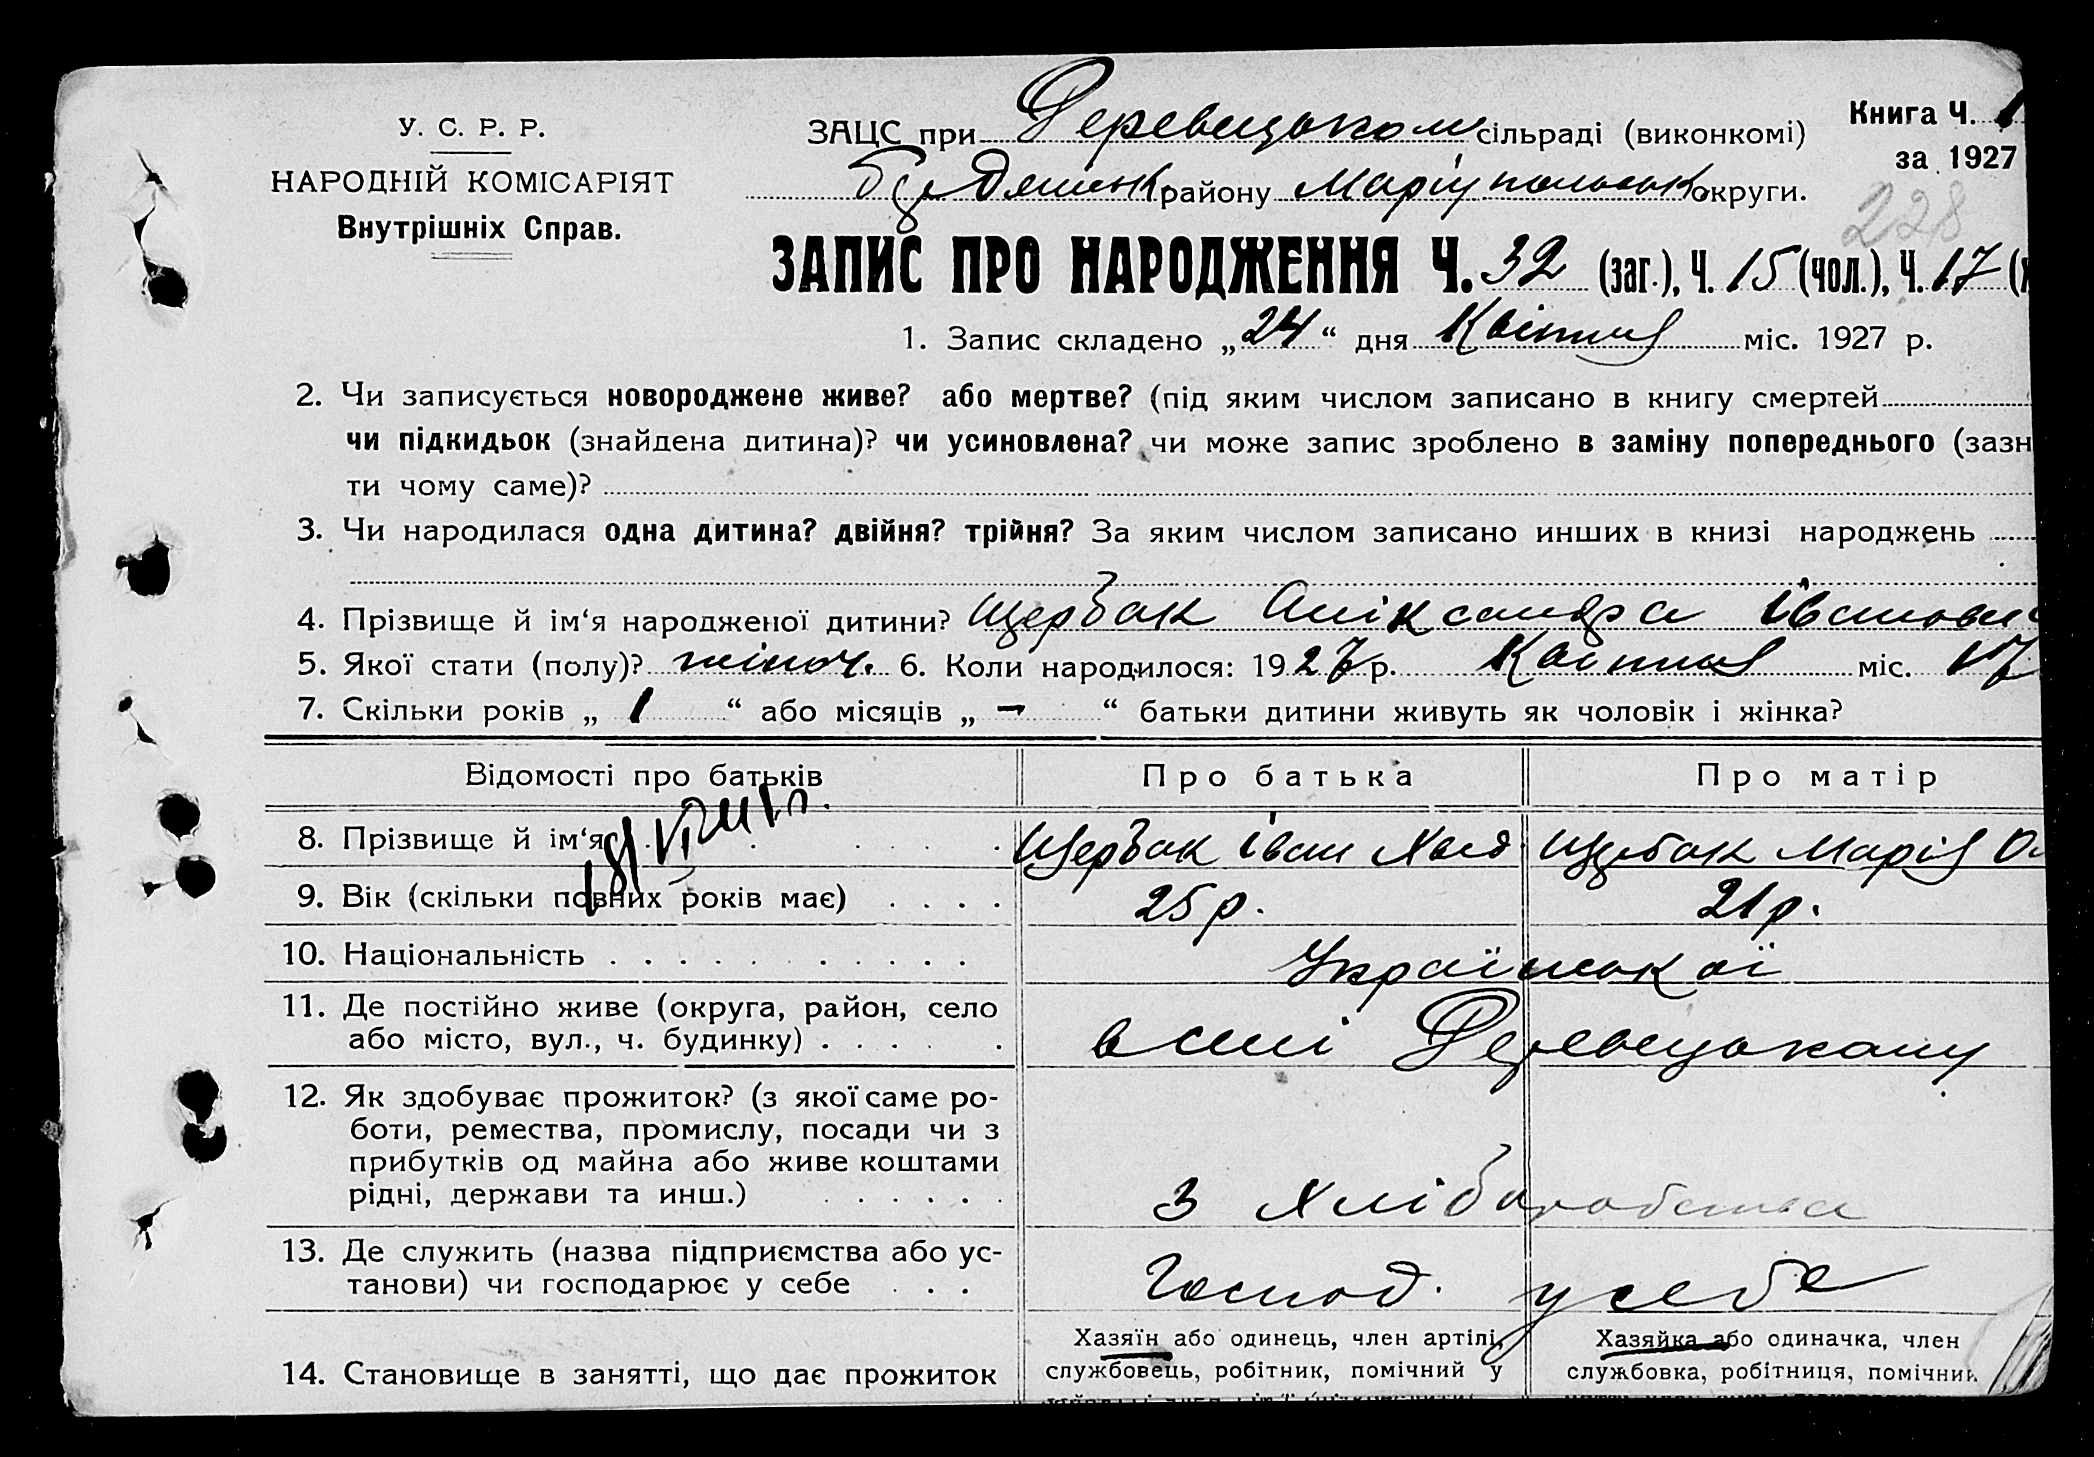 У. С. Р. Р.
НАРОДНІЙ КОМІСАРІЯТ
Внутрішніх Справ.
Книга Ч. 1
за 1927
ЗАЦС при Деревецьком сільраді (виконкомі)
району Маріупольськ округи.
228
ЗАПИС ПРО НАРОДЖЕННЯ Ч. 32 (заг.), Ч. 15 (чол.), Ч. 17
1. Запис складено „24“ дня Квітня міс. 1927 р.
2. Чи записується новороджене живе? або мертве? (під яким числом записано в книгу смертей
чи підкидьок (знайдена дитина)? чи усиновлена? чи може запис зроблено в заміну попереднього (зазн
ти чому саме)?
3. Чи народилася одна дитина? двійня? трійня? За яким числом записано инших в книзі народжень
4. Прізвище й ім‘я народженої дитини? Щербак Аліксандра Івановн
5. Якої стати (полу)? жіноч. 6. Коли народилося: 1927 р. Квітня міс. 17
7. Скільки років „ 1 “ або місяців „ – “ батьки дитини живуть як чоловік і жінка?
Відомості про батьків Про батька Про матір
8. Прізвище й ім‘я Щербак Іван Щербак Марія
9. Вік (скільки повних років має) 25 р. 21 р.
10. Національність Української
11. Де постійно живе (округа, район, село
або місто, вул., ч. будинку) в селі Деревецькому
12. Як здобуває прожиток? (з якої саме ро-
боти, ремества, промислу, посади чи з
прибутків од майна або живе коштами
рідні, держави та инш.) З хліборобства
13. Де служить (назва підприємства або ус-
танови) чи господарює у себе Господ. у себе
14. Становище в занятті, що дає прожиток
Хазяїн або одинець, член артілі,
службовець, робітник, помічний у
Хазяйка або одиначка, член
службовка, робітниця, помічни